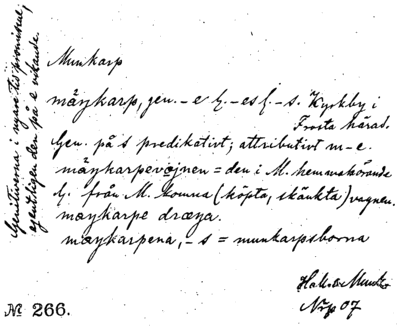 Munkarp
mäŋkarp, gen. - e l. - es l. - s. Kyrkby i
Frosta härad.
Gen. på s predikativt; attributivt n - e.
mäŋkarpevajnen = den i M. hemmahörande
l. från M. komna (köpta, skänkta) vagnen.
mæŋkarpe dræŋa.
mæŋkarpena, - s = munkarpsborna
Genitiverna i nyare tid
egentligen den på e vikande.
Nrp 07
№ 266.